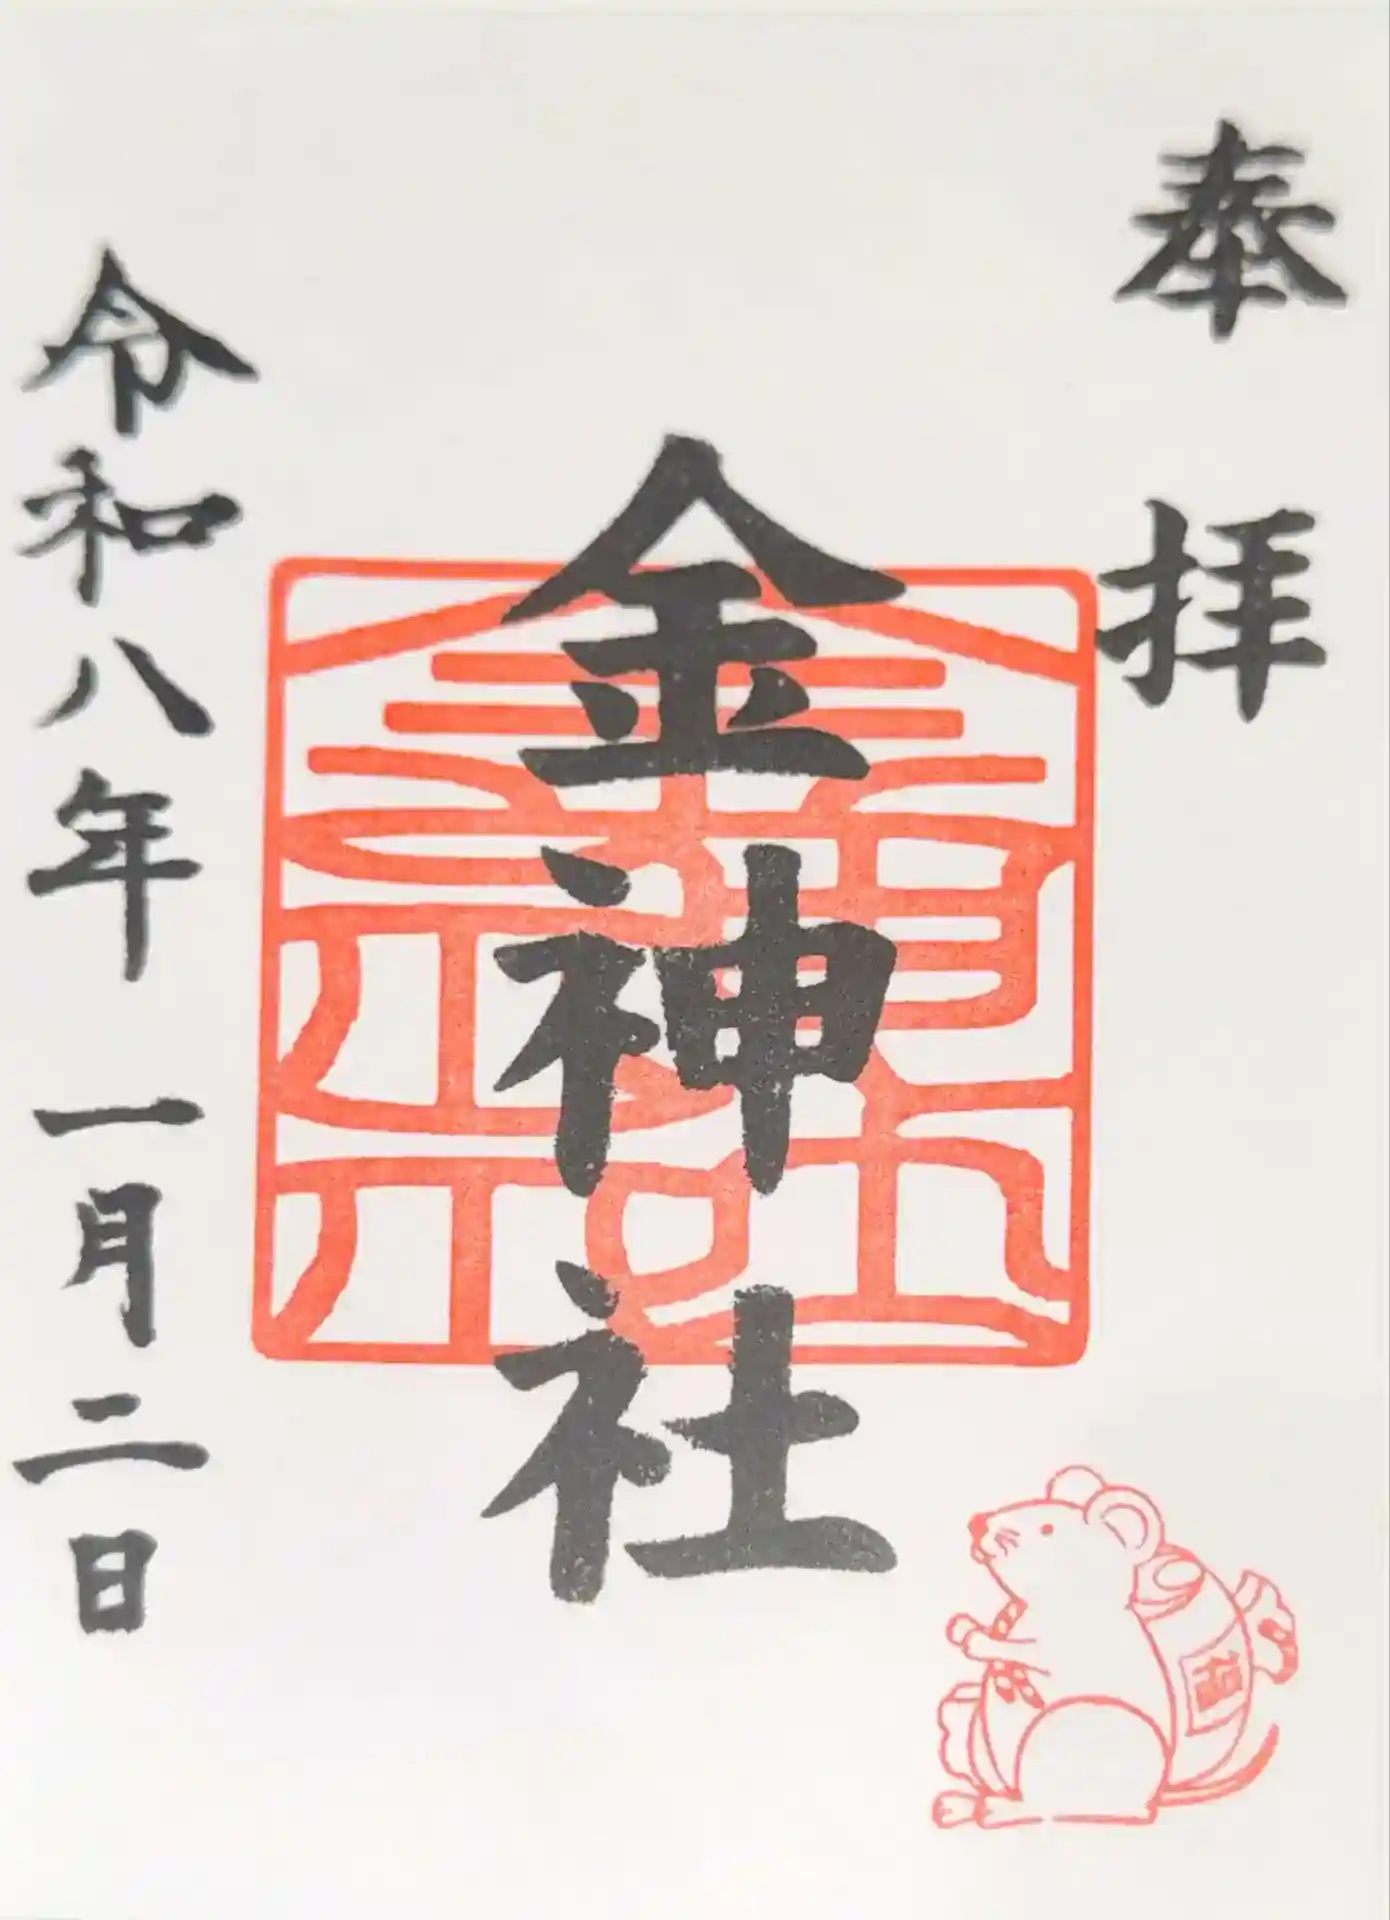 奉拝
金神社
令和八年一月二日